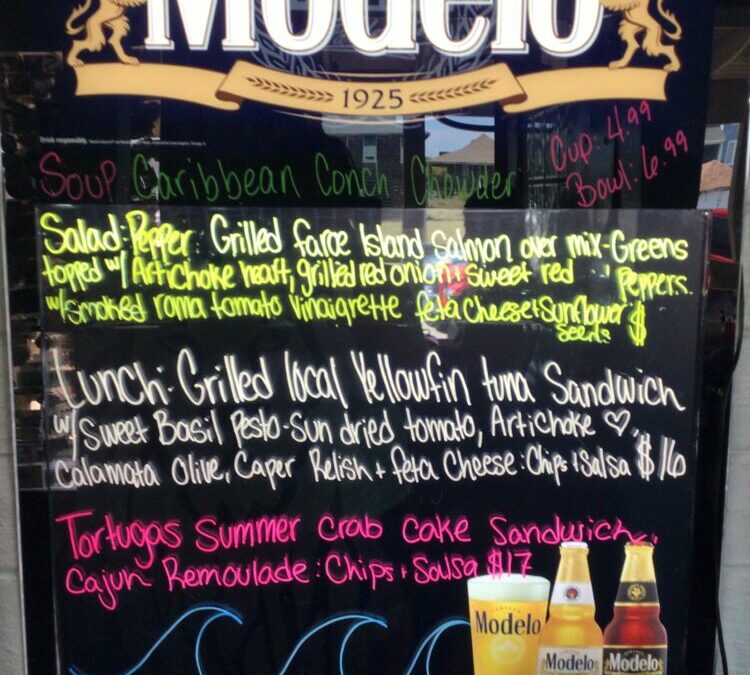 Modelo
1925
Soup Caribbean Conch Chowder
Cup: 4.99
Bowl: 6.99
Salad: Pepper Grilled Faroe Island Salmon over mix-Greens
topped w/ Artichoke heart, grilled red onion + sweet red Peppers.
w/ smoked roma tomato vinaigrette feta Cheese + Sunflower seeds $
Lunch: Grilled local Yellowfin tuna Sandwich
w/ Sweet Basil Pesto - Sun dried tomato, Artichoke ♡,
Calamata Olive, Caper Relish + feta Cheese: Chips + Salsa $16
Tortugas Summer Crab Cake Sandwich,
Cajun Remoulade: Chips + Salsa $17
Modelo
Modelo
Modelo